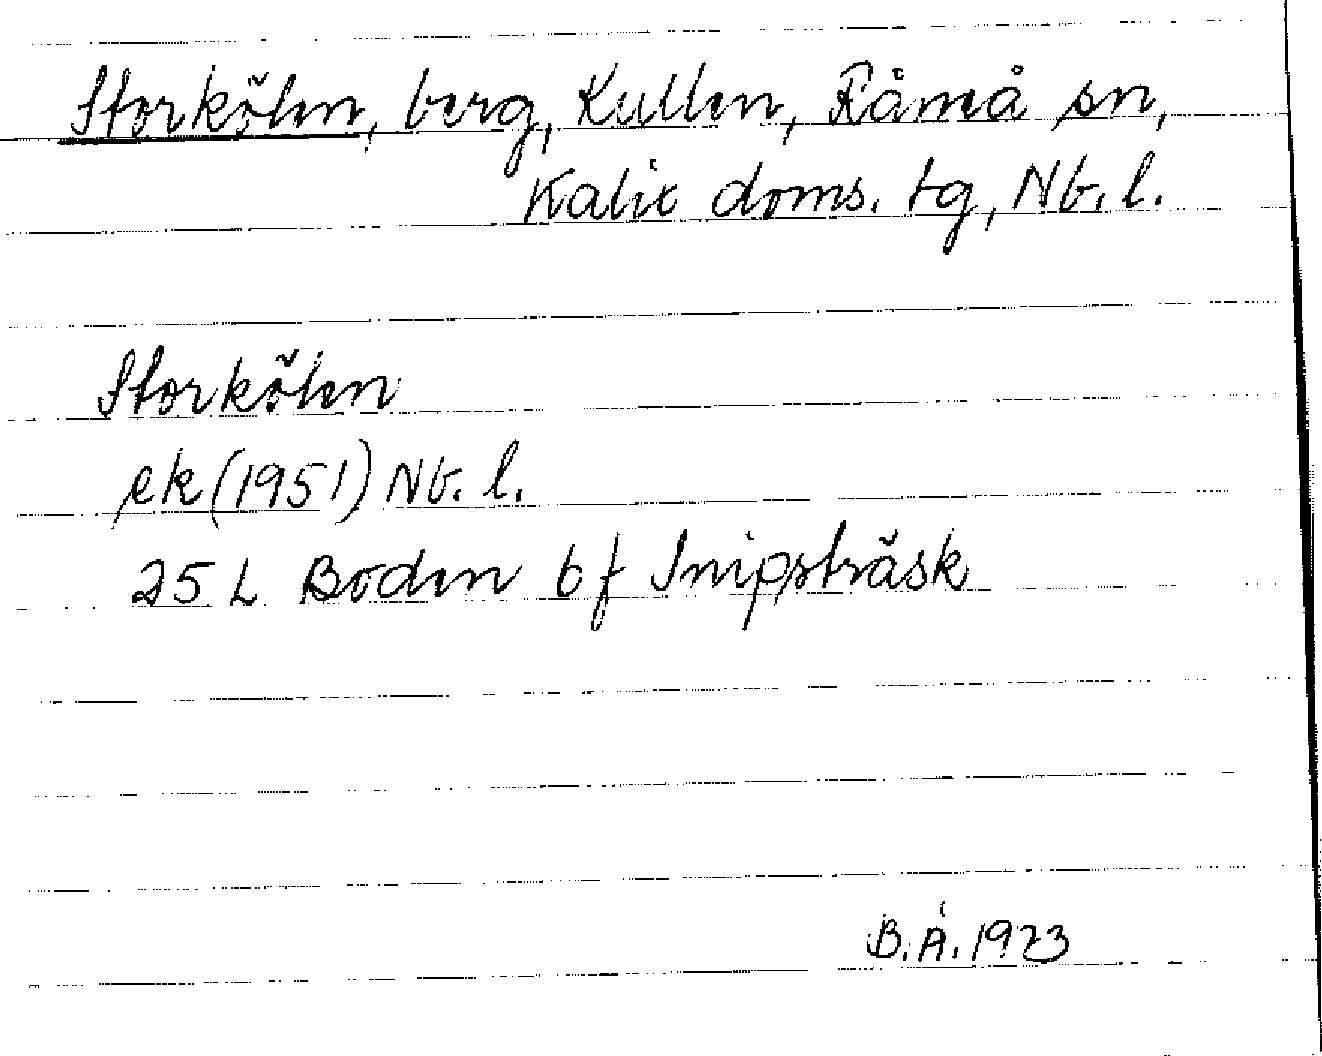 Storkölen, berg, Kullen, Råneå sn,
Kalix doms. tg, Nb. l.
Storkölen
ek (1951) Nb. l.
25 L Boden 6 f Snipsträsk
B.Å. 1973